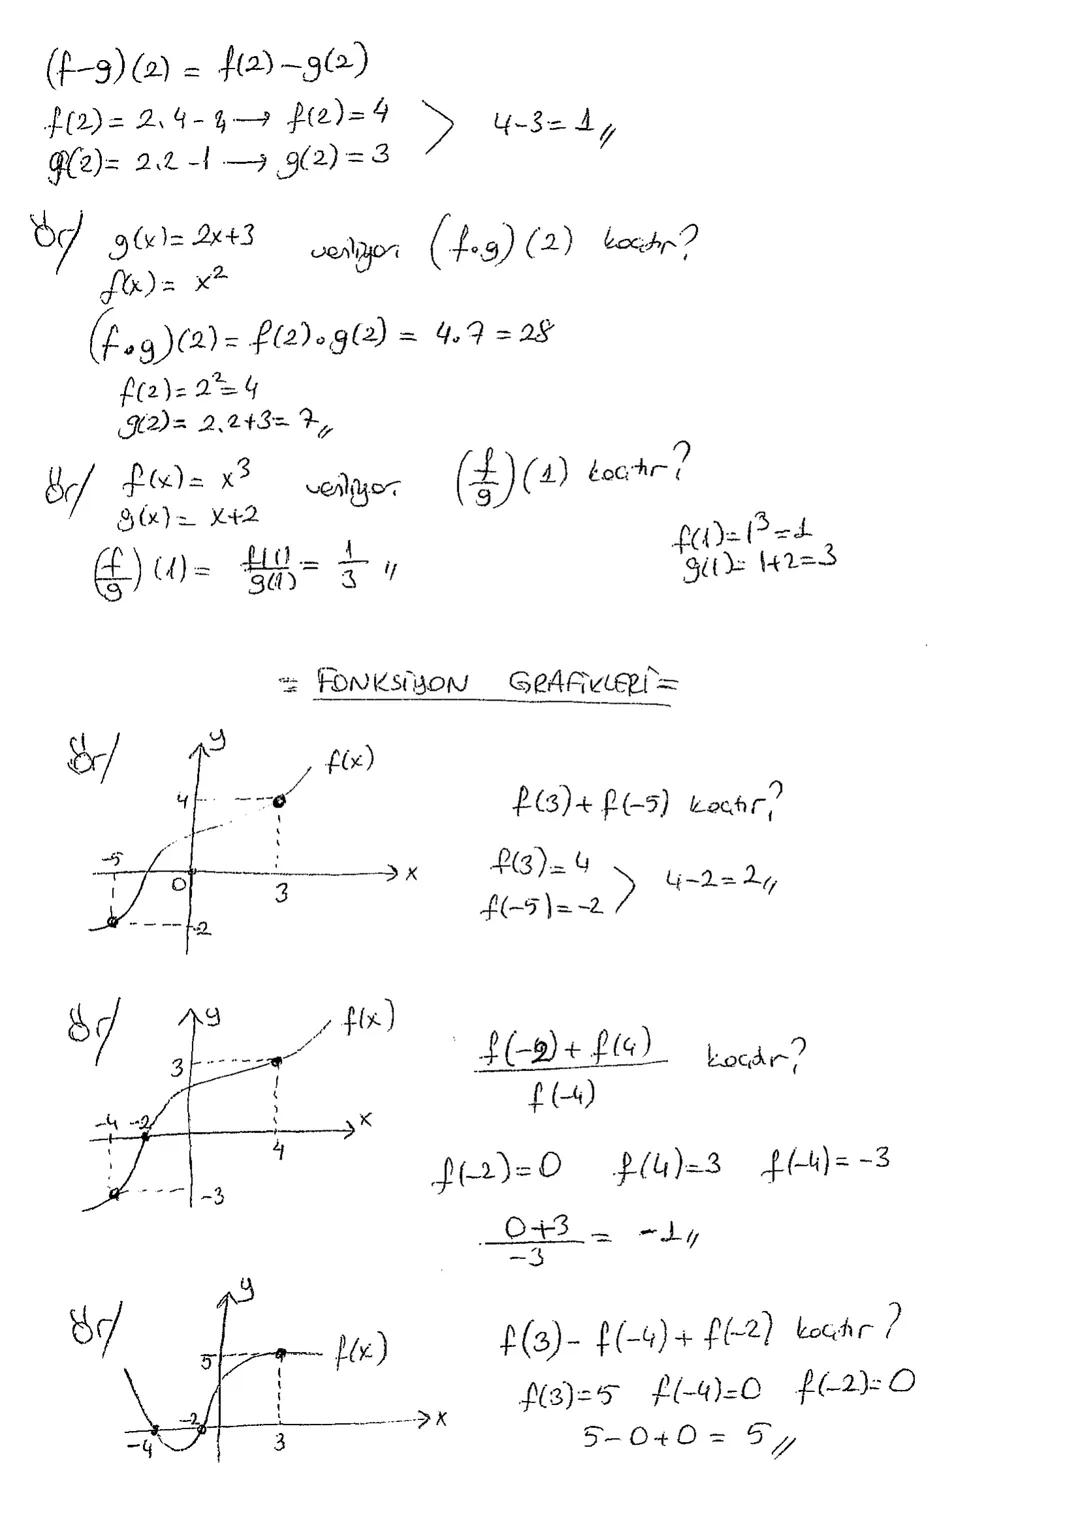 (f-g)(2) = f(2)-g(2)
f(2) = 2.4-4 → f(2)=4
g(2) = 2.2-1 → g(2)=3
4-3=1
Ör/ g(x)= 2x+3 veriliyor. (f.g)(2) kaçtır?
f(x)= x²
(f.g)(2) = f(2).g(2) = 4.7 = 28
f(2)= 2²= 4
g(2)= 2.2+3= 7
Ör/ f(x)= x³ veriliyor. (f/g)(1) kaçtır?
g(x)= x+2
f(1)= 1³ = 1
g(1)= 1+2=3
(f/g)(1) = f(1)/g(1) = 1/3
= FONKSİYON GRAFİKLERİ =
Ör/ y f(x)
4
-5 0 3 x
-2
f(3)+f(-5) kaçtır?
f(3)=4
f(-5)=-2
4-2=2
Ör/ y f(x)
3
-4 -2 4 x
-3
(f(-2)+f(4))/f(-4) kaçtır?
f(-2)=0 f(4)=3 f(-4)=-3
(0+3)/-3 = -1
Ör/ y f(x)
5
-4 -2 3 x
f(3)-f(-4)+f(-2) kaçtır?
f(3)=5 f(-4)=0 f(-2)=0
5-0+0 = 5